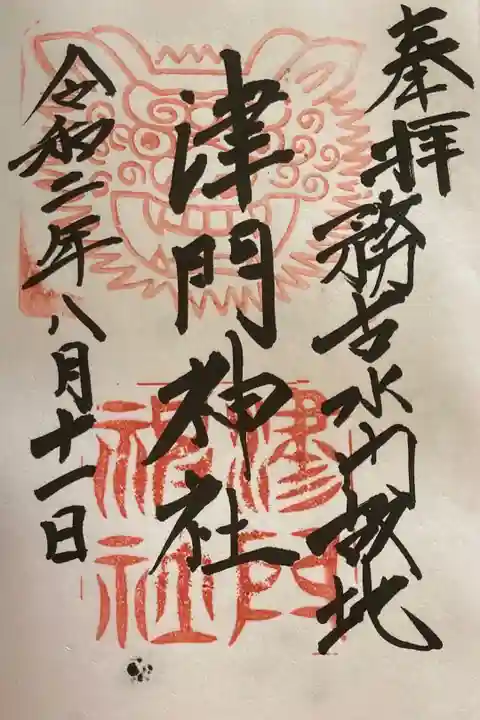 奉拝 務古水門故地
津門神社
令和二年八月十一日
津門
神社